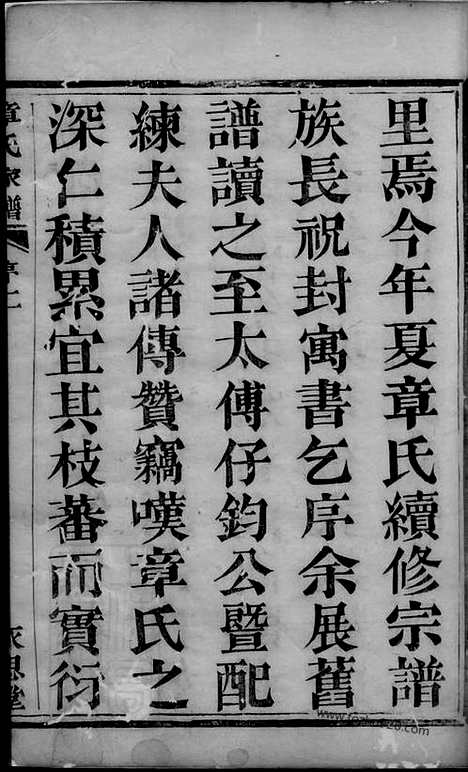 里焉今年夏章氏續修宗譜
族長祝封寓書乞序余展舊
譜讀之至太傅仔鈞公暨配
練夫人諸傳贊竊嘆章氏之
深仁積累宜其枝蕃而實衍
章氏家譜 序 二
思堂